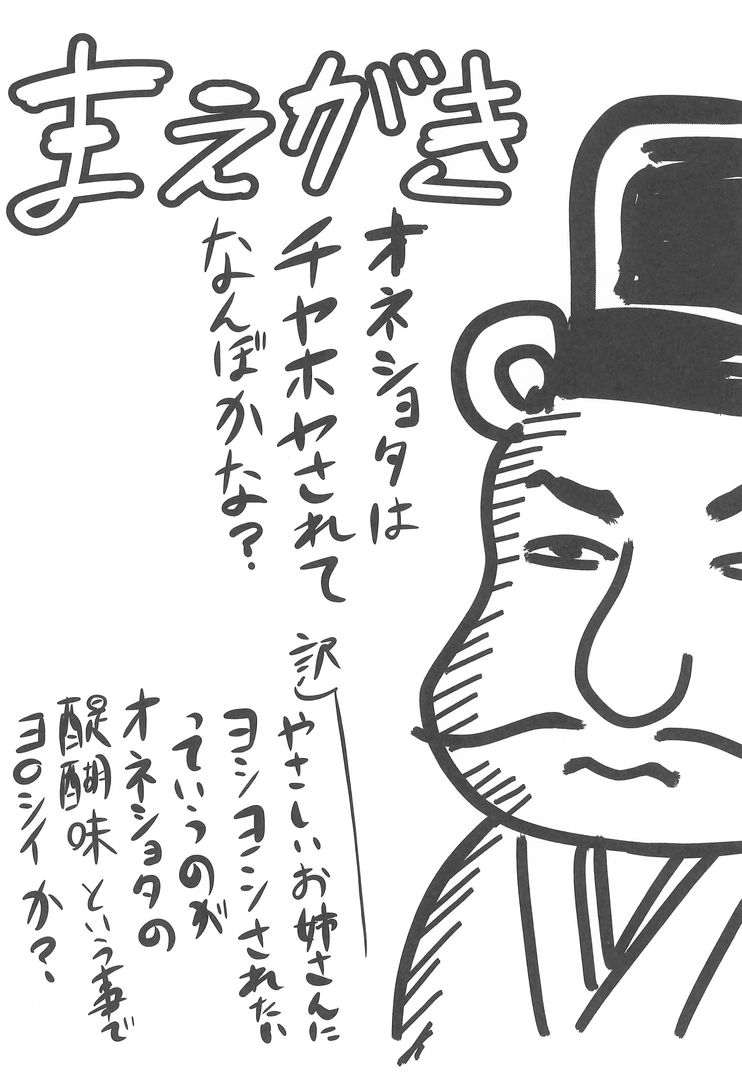 まえがき
オネショタは
チヤホヤされて
なんぼかな?
訳
やさしいお姉さんに
ヨシヨシされたい
っていうのが
オネショタの
醍醐味という事で
ヨロシイか?